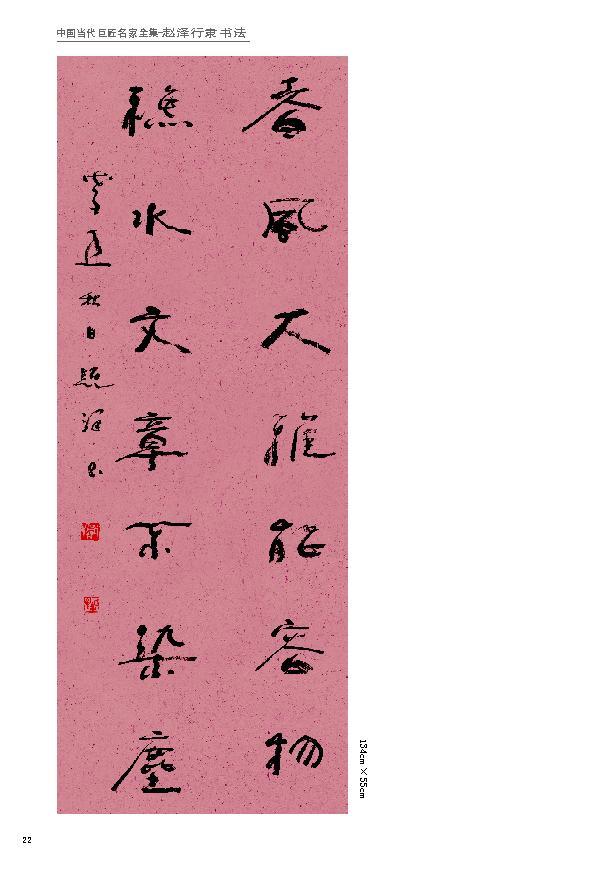 中国当代巨匠名家全集-赵泽行隶书法
春風大雅能容物
穛水文章不染塵
秋日趙澤书
134cm×55cm
22